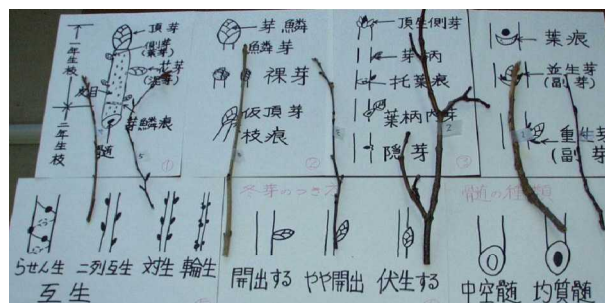 頂芽
側芽
(葉芽)
花芽
皮目
芽鱗痕
髄
一年生枝
二年生枝
①
芽鱗
鱗芽
裸芽
仮頂芽
枝痕
②
頂生側芽
芽柄
托葉痕
葉柄内芽
隠芽
③
葉痕
並生芽
(副芽)
重生芽
(副芽)
らせん生 二列互生 対生 輪生
互生
冬芽のつき方
開出する やや開出 伏生する
髄の種類
中空髄 均質髄